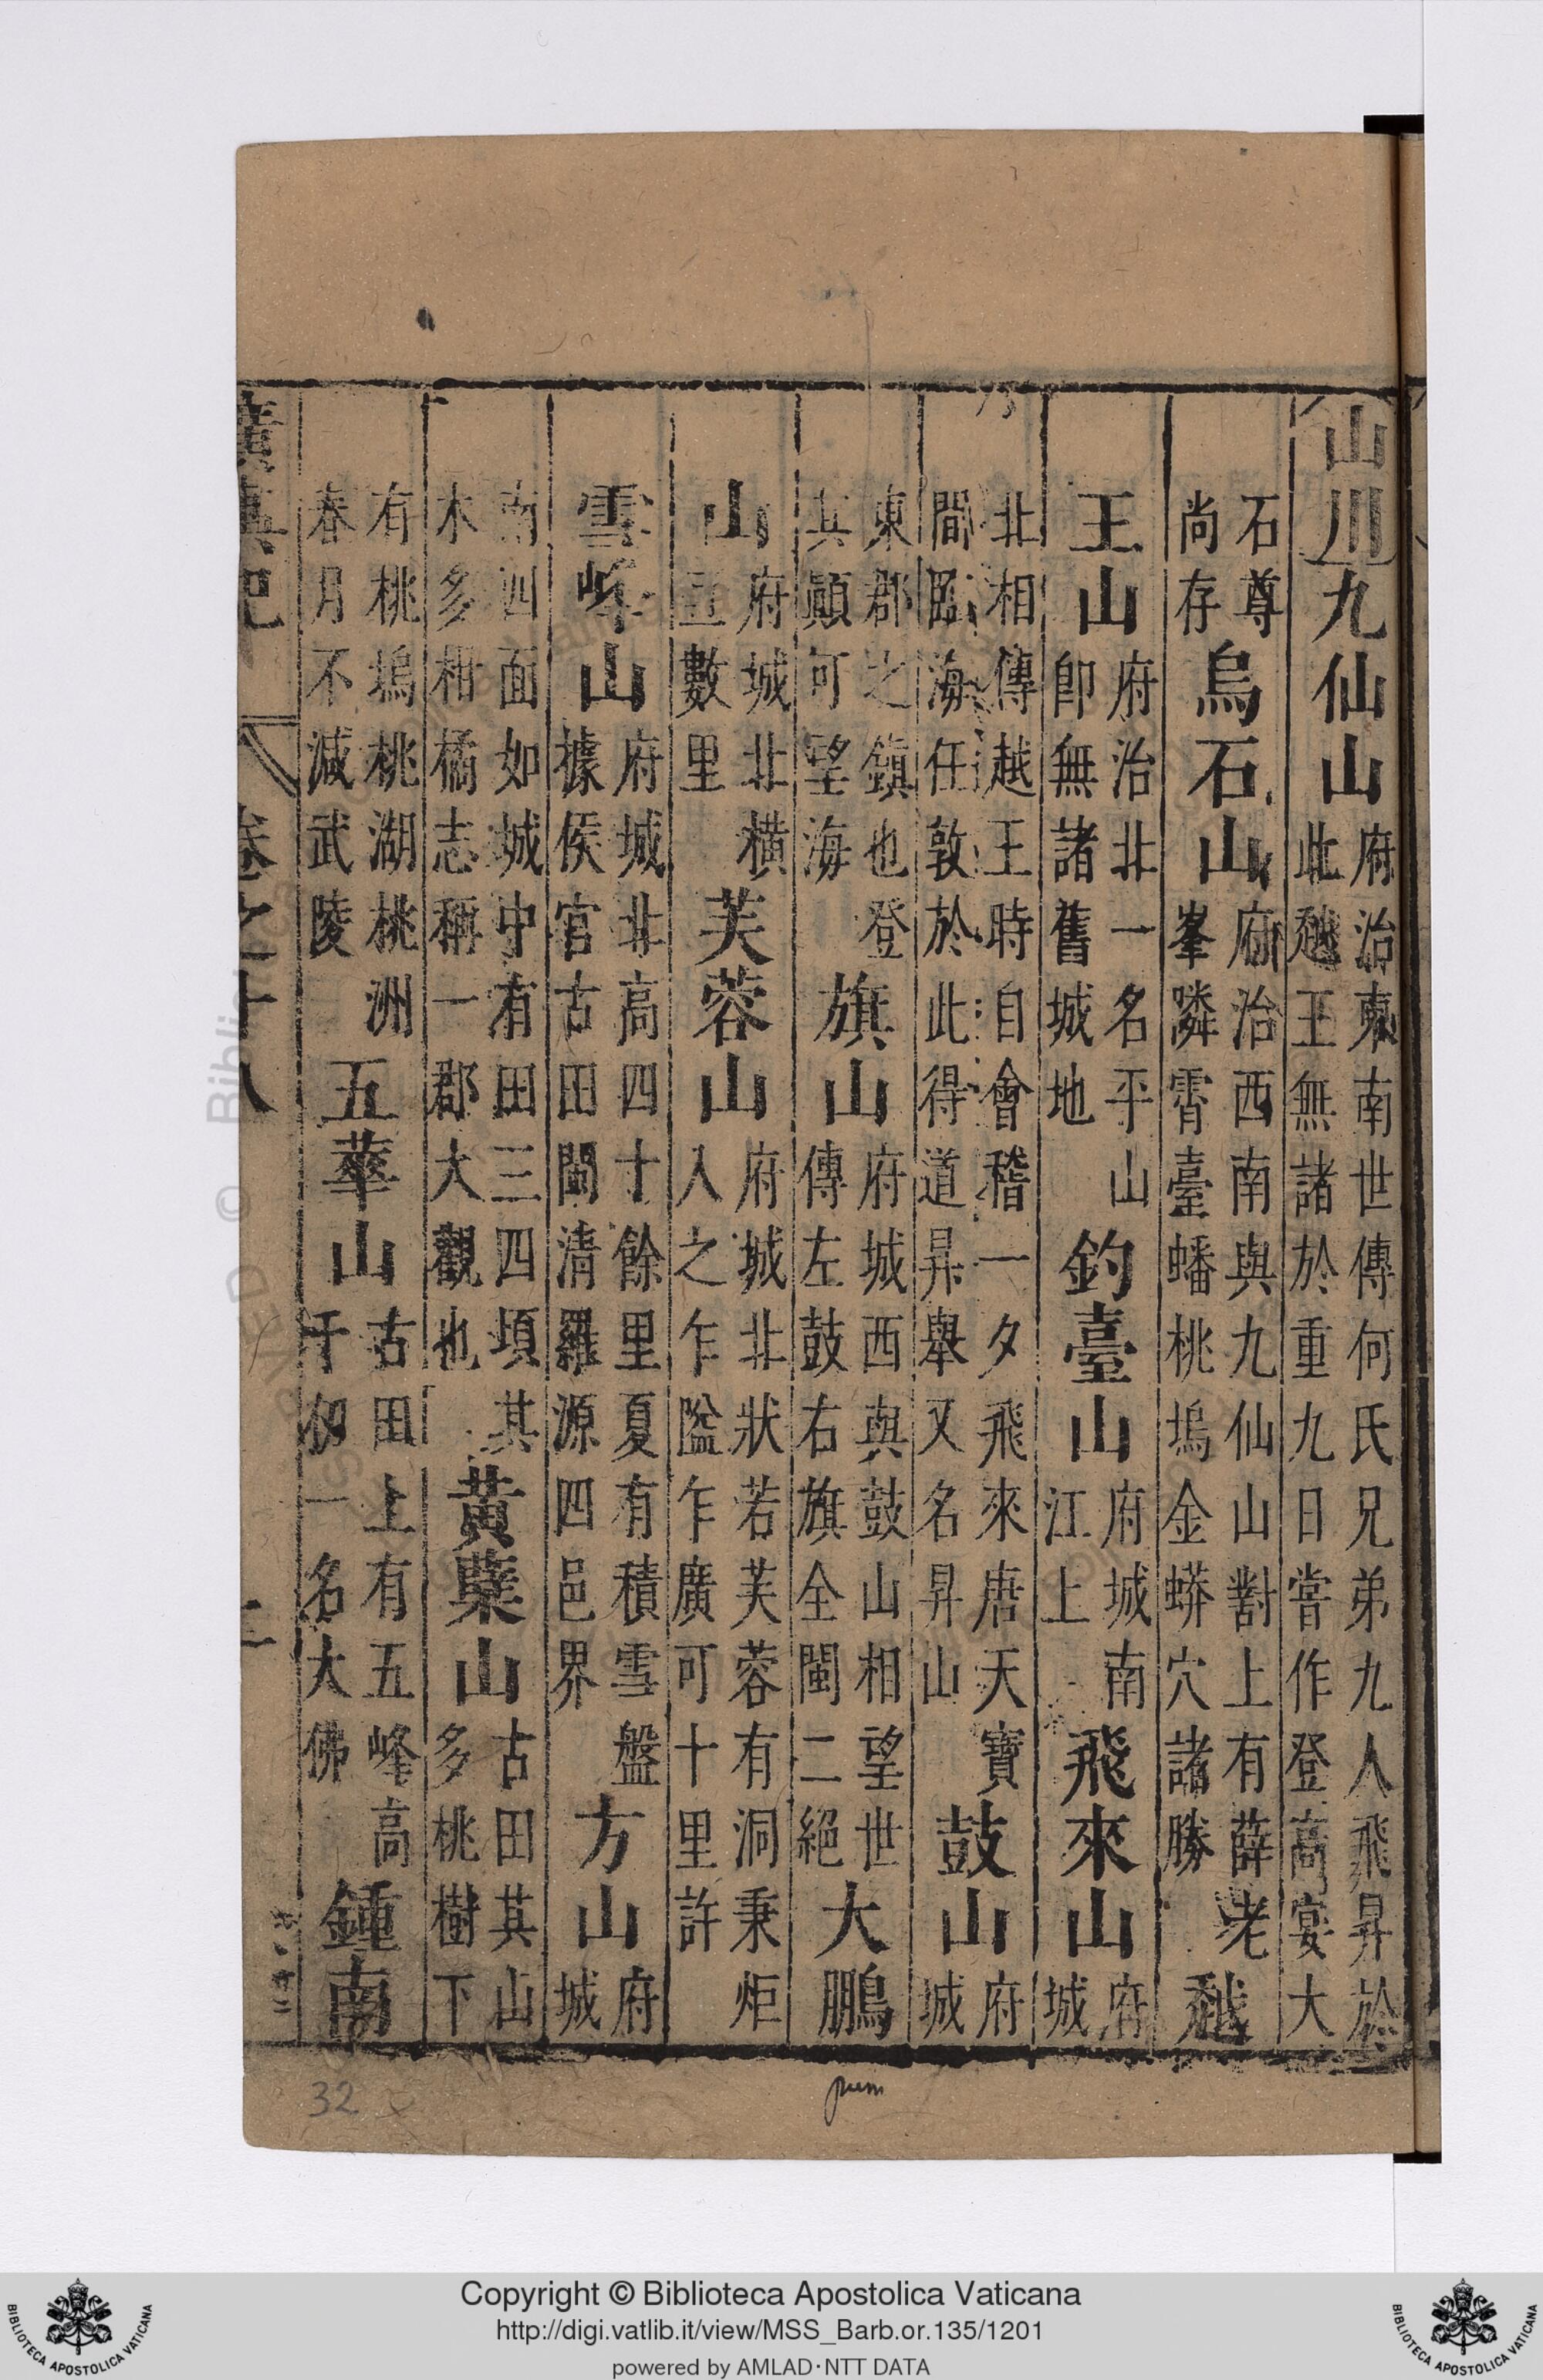 山川九仙山府治東南世傳何氏兄弟九人飛昇於此越王無諸於重九日嘗作登高宴大
石尊尚存烏石山府治西南與九仙山對上有薛老峯隣霄臺蟠桃塢金蟒穴諸勝越
王山府治北一名平山即無諸舊城地釣臺山府城南江上飛來山府城
北相傳越王時自會稽一夕飛來唐天寶間臨海任敦於此得道昇舉又名昇山鼓山府城
東郡之鎮也登其顛可望海旗山府城西與鼓山相望世傳左鼓右旗全閩二絕大鵬
山府城北橫亘數里芙蓉山府城北狀若芙蓉有洞秉炬入之乍隘乍廣可十里許
雪峰山府城北高四寸餘里夏有積雪盤據侯官古田閩清羅源四邑界方山府城
南四面如城中有田三四頃其木多柑橘志稱一郡大觀也黃蘗山古田其山多桃樹下
有桃塢桃湖桃洲春月不減武陵五華山古田上有五峰高千仞一名大佛鍾南
廣輿記 卷之十八 二
32
Copyright © Biblioteca Apostolica Vaticana
http://digi.vatlib.it/view/MSS_Barb.or.135/1201
powered by AMLAD·NTT DATA
BIBLIOTECA APOSTOLICA VATICANA
BIBLIOTECA APOSTOLICA VATICANA